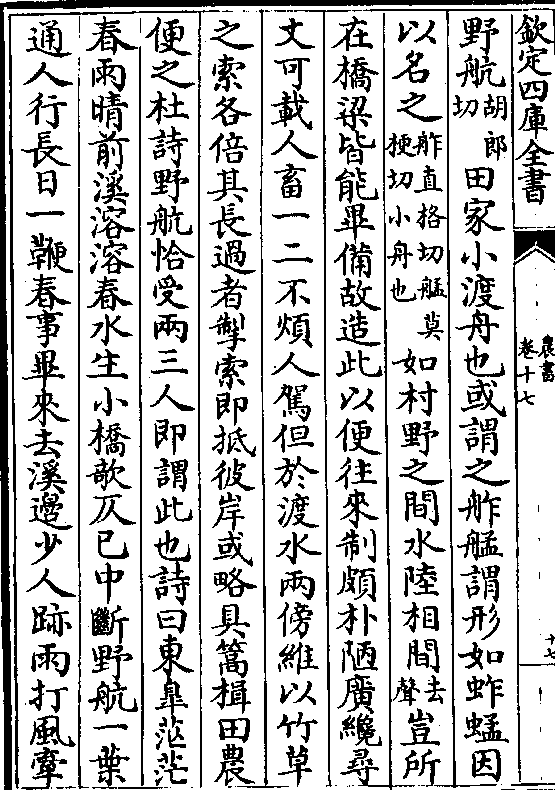 欽定四庫全書
農書
卷十七
十七
野航胡郎切田家小渡舟也或謂之舴艋謂形如蚱蜢因
以名之舴直格切艋莫梗切小舟也如村野之間水陸相間去聲豈所
在橋梁皆能畢備故造此以便往來制頗朴陋廣纔尋
丈可載人畜一二不煩人駕但於渡水兩傍維以竹草
之索各倍其長過者掣索即抵彼岸或略具篙楫田農
便之杜詩野航恰受兩三人即謂此也詩曰東臯茫茫
春雨晴前溪溶溶春水生小橋欹仄已中斷野航一葉
通人行長日一鞭春事畢來去溪邊少人跡雨打風牽